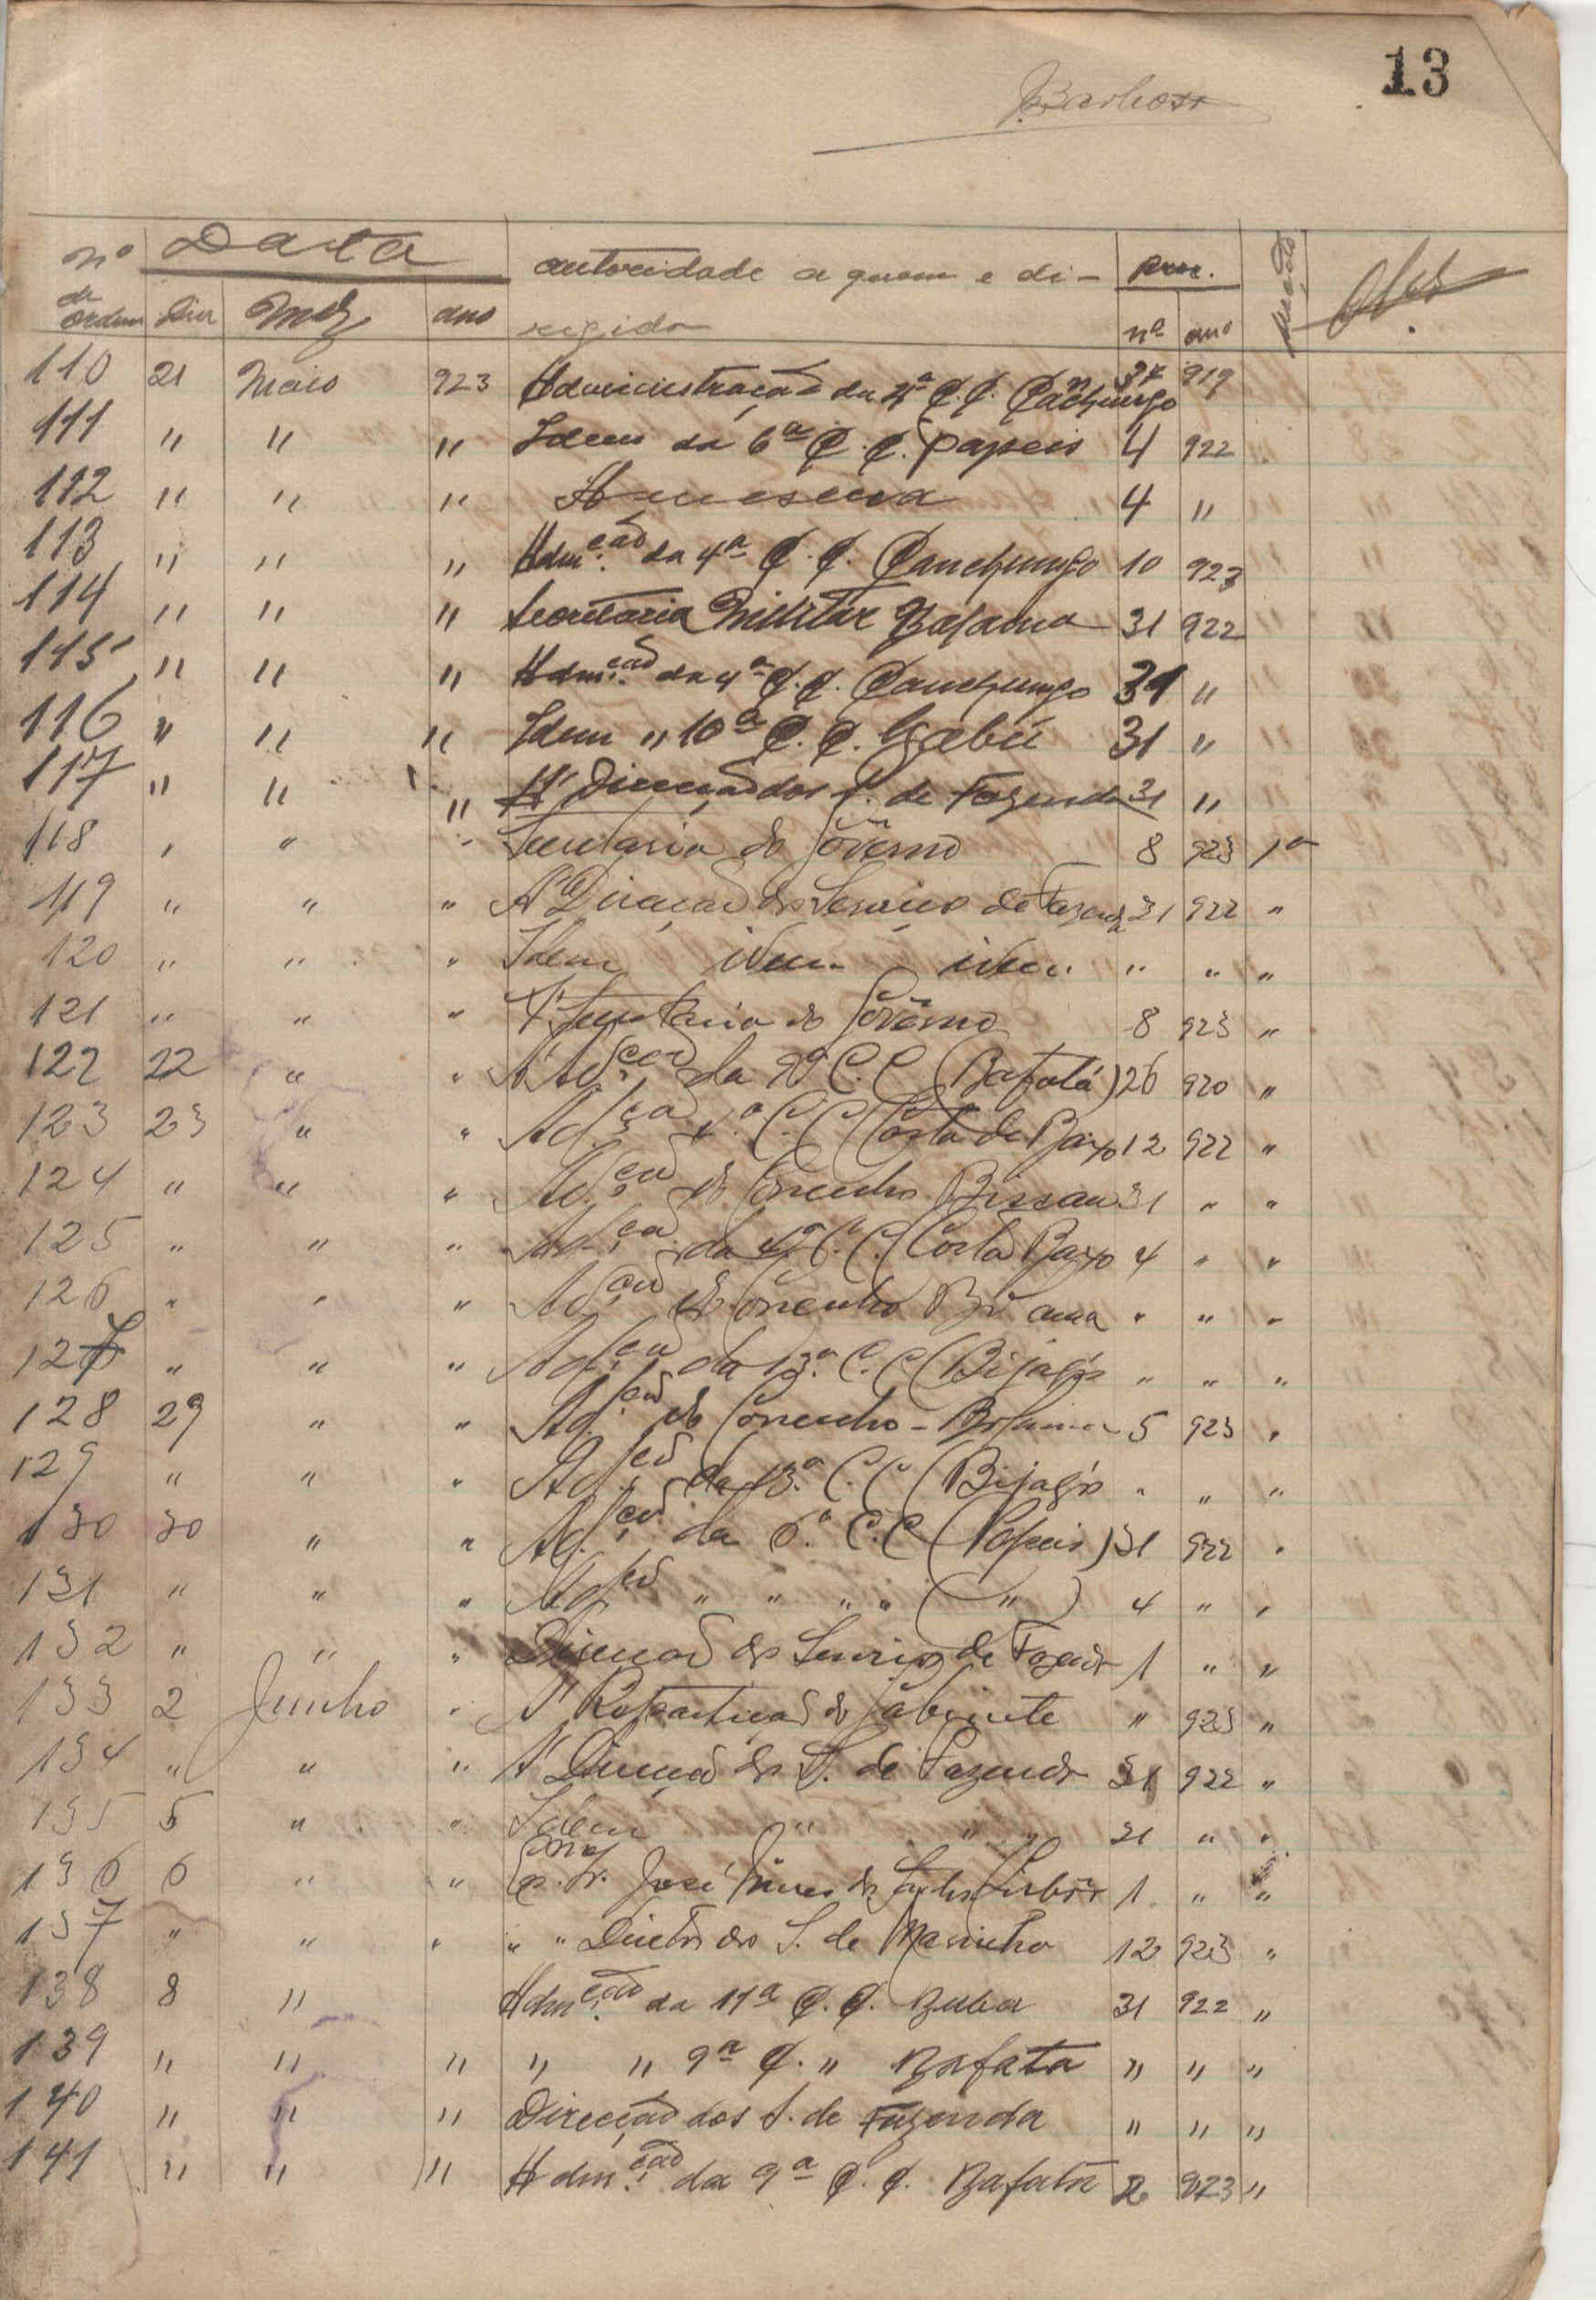 13
Barbosa
nº de ordem Data autoridade a quem e di- Proc. Secção Obs.
Dia Mez ano regida nº ano
110 21 Maio 923 Administração da 4ª C. C. Canchungo 37 919
111 " " " Idem da 6ª C. C. Papeis 4 922
112 " " " A mesma 4 "
113 " " " Adm.ção da 4ª C. C. Canchungo 10 923
114 " " " Secretaria Militar Bolama 31 922
115 " " " Adm.ção da 4ª C. C. Canchungo 31 "
116 " " " Idem " 10ª C. C. Gabú 31 "
117 " " " Á Direcção dos S. de Fazenda 31 "
118 " " " Secretaria do Govêrno 8 923 1ª
119 " " " Á Direcção dos Serviços de Fazenda 31 922 "
120 " " " Idem idem idem " " "
121 " " " Á Secretaria do Govêrno 8 923 "
122 22 " " Á Ad.ção da 9ª C. C (Bafatá) 26 920 "
123 23 " " Ad.ção 4ª C. C (Costa de Baixo 12 922 "
124 " " " Ad.ção do Concelho Bissau 31 " "
125 " " " Ad.ção da 4ª C. C. (Costa Baixo 4 " "
126 " " " Ad.ção do Concelho Bolama " " "
127 " " " Ad.ção da 13.ª C. C (Bijagós " " "
128 29 " " Ad.ção do Concelho - Bolama 5 923 "
129 " " " Ad.ção da 13.ª C. C (Bijagós " " "
130 30 " " Ad.ção da 6.ª C. C (Papeis) 31 922 "
131 " " " Ad.ção " " " " ( " ) 4 " "
132 " " " Direcção dos Serviços de Fazenda 1 " "
133 2 Junho " Á Repartição do Gabinete " 923 "
134 " " " Á Direcção dos S. de Fazenda 31 922 "
135 5 " " Idem " " " 31 " "
136 6 " " Exmo Sr. José Lisboa 1 " "
137 " " " " " Director dos S. de Marinha 12 923 "
138 8 " Adm.ção da 11ª C. C. Buba 31 922 "
139 " " " " " 9ª C. " Bafata " " "
140 " " " Direcção dos S. de Fazenda " " "
141 " " " Adm.ção da 9ª C. C. Bafatá 2 923 "